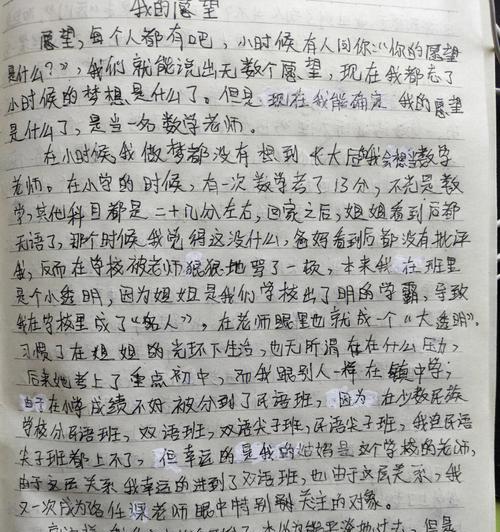 我的愿望
愿望，每个人都有吧，小时候有人问你："你的愿望
是什么？"，我们就能说出无数个愿望，现在我都忘了
小时候的梦想是什么了。但是现在我能确定我的愿望
是什么了，是当一名数学老师。
在小时候我做梦都没有想到长大后我会想当数学
老师。在小学的时候，有一次数学考了13分，不光是数
学，其他科目都是二十几分左右，回家之后，姐姐看到后都
无语了，那个时候我觉得这没什么，爸妈看到后都没有批评
我，反而在学校被老师狠狠地骂了一顿，本来我在班里
是个小透明，因为姐姐是我们学校出了明的学霸，导致
我在学校里成了"名人"，在老师眼里也就成一个"大透明"。
习惯了在姐姐的光环下生活，也无所谓存在什么压力，
后来她考上了重点初中，而我跟别人一样在镇中学；
由于在小学成绩不好被分到了民语班，因为在少数民族
学校分民语班，双语班，双语尖子班，民语尖子班，我连民语
尖子班都上不了，但幸运的是我的姑妈是这个学校的老师，
由于这层关系我幸运的进到了双语班，也由于这层关系，我
又一次成为各任课老师眼中特别关注的对象。